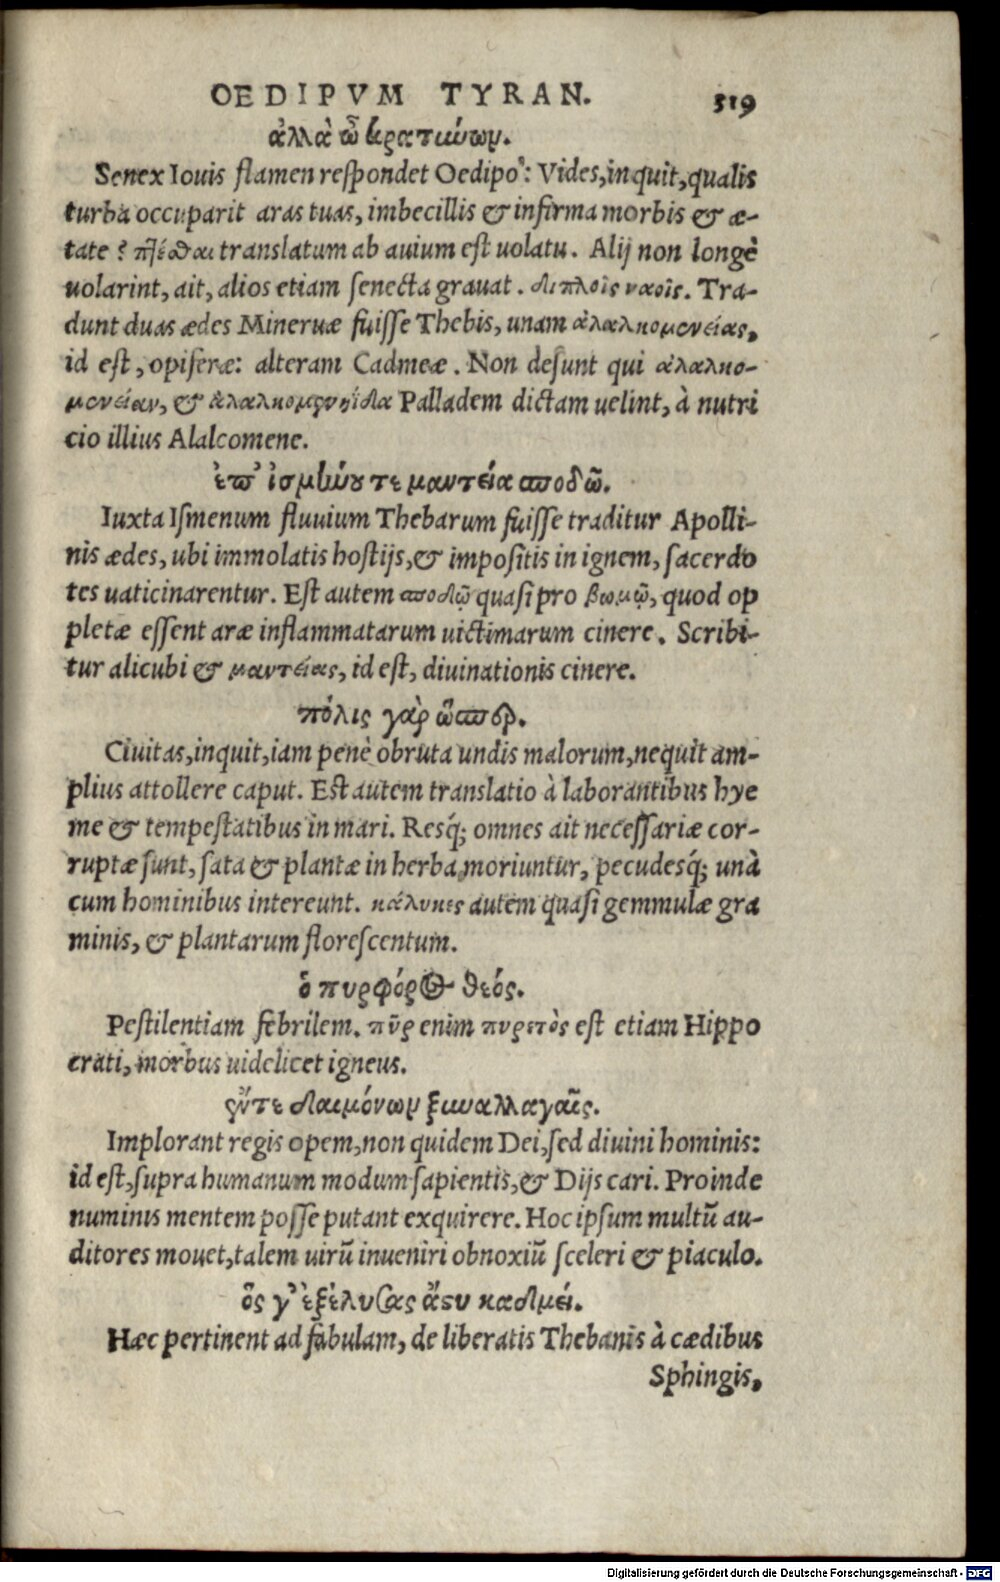 OEDIPVM TYRAN. 519
ἀλλὰ ὦ κρατιώων.
Senex Iouis flamen respondet Oedipo: Vides, inquit, qualis
turba occuparit aras tuas, imbecillis & infirma morbis & æ-
tate? πτέϑαι translatum ab auium est uolatu. Alij non longè
uolarint, ait, alios etiam senecta grauat. διπλοῖς ναοῖς. Tra-
dunt duas ædes Mineruæ fuisse Thebis, unam ἀλαλκομενείας,
id est, opiferæ: alteram Cadmeæ. Non desunt qui ἀλαλκο-
μενείαν, & ἀλαλκομενηίδα Palladem dictam uelint, à nutri
cio illius Alalcomene.
ἐπ' ἰσμίωου τε μαντεία σποδῷ.
Iuxta Ismenum fluuium Thebarum fuisse traditur Apolli-
nis ædes, ubi immolatis hostijs, & impositis in ignem, sacerdo
tes uaticinarentur. Est autem σποδῷ quasi pro βωμῷ, quod op
pletæ essent aræ inflammatarum uictimarum cinere. Scribi-
tur alicubi & μαντείας, id est, diuinationis cinere.
πόλις γὰρ ὥσπερ.
Ciuitas, inquit, iam penè obruta undis malorum, nequit am-
plius attollere caput. Est autem translatio à laborantibus hye
me & tempestatibus in mari. Resq; omnes ait necessariæ cor-
ruptæ sunt, sata & plantæ in herba moriuntur, pecudesq́; unà
cum hominibus intereunt. κάλυκες autem quasi gemmulæ gra
minis, & plantarum florescentum.
ὁ πυρφόρος θεός.
Pestilentiam febrilem. πῦρ enim πυρετὸς est etiam Hippo
crati, morbus uidelicet igneus.
οὔτε δαιμόνων ξυναλλαγαῖς.
Implorant regis opem, non quidem Dei, sed diuini hominis:
id est, supra humanum modum sapientis, & Dijs cari. Proinde
numinis mentem posse putant exquirere. Hoc ipsum multũ au-
ditores mouet, talem uirũ inueniri obnoxiũ sceleri & piaculo.
ὅς γ' ἐξέλυσας ἄστυ καδμεῖ.
Hæc pertinent ad fabulam, de liberatis Thebanis à cædibus
Sphingis,
Digitalisierung gefördert durch die Deutsche Forschungsgemeinschaft - DFG